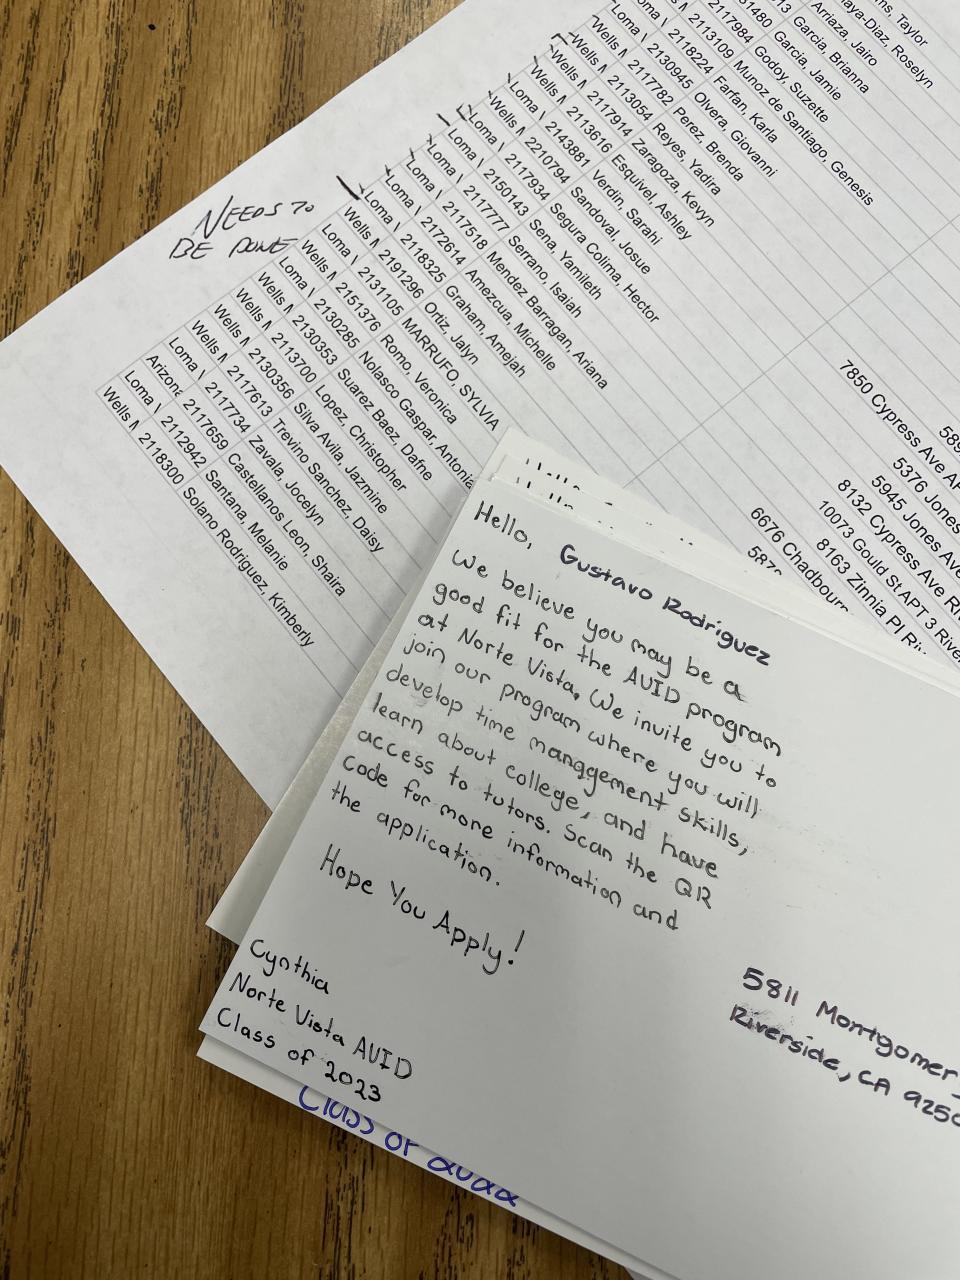 NEEDS TO
BE DONE
ns, Taylor
aya-Diaz, Roselyn
Arriaza, Jairo
Garcia, Brianna
1480 Garcia, Jamie
2117984 Godoy, Suzette
2113109 Munoz de Santiago, Genesis
2118224 Farfan, Karla
Loma \ 2130945 Olvera, Giovanni
Wells M 2117782 Perez, Brenda
Wells M 2113054 Reyes, Yadira
Wells M 2117914 Zaragoza, Kevyn
Wells M 2113616 Esquivel, Ashley
Loma \ 2143881 Verdin, Sarahi
Wells M 2210794 Sandoval, Josue
Loma \ 2117934 Segura Colima, Hector
Loma \ 2150143 Sena, Yamileth
Loma \ 2117777 Serrano, Isaiah
Loma \ 2117518 Mendez Barragan, Ariana
Loma \ 2172614 Amezcua, Michelle
Loma \ 2118325 Graham, Amejah
Wells M 2191296 Ortiz, Jalyn
Loma \ 2131105 MARRUFO, SYLVIA
Wells M 2151376 Romo, Veronica
Loma \ 2130285 Nolasco Gaspar, Antonia
Wells M 2130353 Suarez Baez, Dafne
Wells M 2113700 Lopez, Christopher
Wells M 2130356 Silva Avila, Jazmine
Wells M 2117613 Trevino Sanchez, Daisy
Loma \ 2117734 Zavala, Jocelyn
Arizona 2117659 Castellanos Leon, Shaira
Loma \ 2112942 Santana, Melanie
Wells M 2118300 Solano Rodriguez, Kimberly
7850 Cypress Ave AP
589
5376 Jones
5945 Jones Ave
8132 Cypress Ave Ri
10073 Gould St APT 3 River
8163 Zinnia Pl Riv
6676 Chadbourn
587
Hello, Gustavo Rodriguez
We believe you may be a
good fit for the AVID program
at Norte Vista. We invite you to
join our program where you will
develop time management skills,
learn about college, and have
access to tutors. Scan the QR
code for more information and
the application.
Hope You Apply!
Cynthia
Norte Vista AVID
Class of 2023
5811 Montgomery
Riverside, CA 9250
Class of 2022